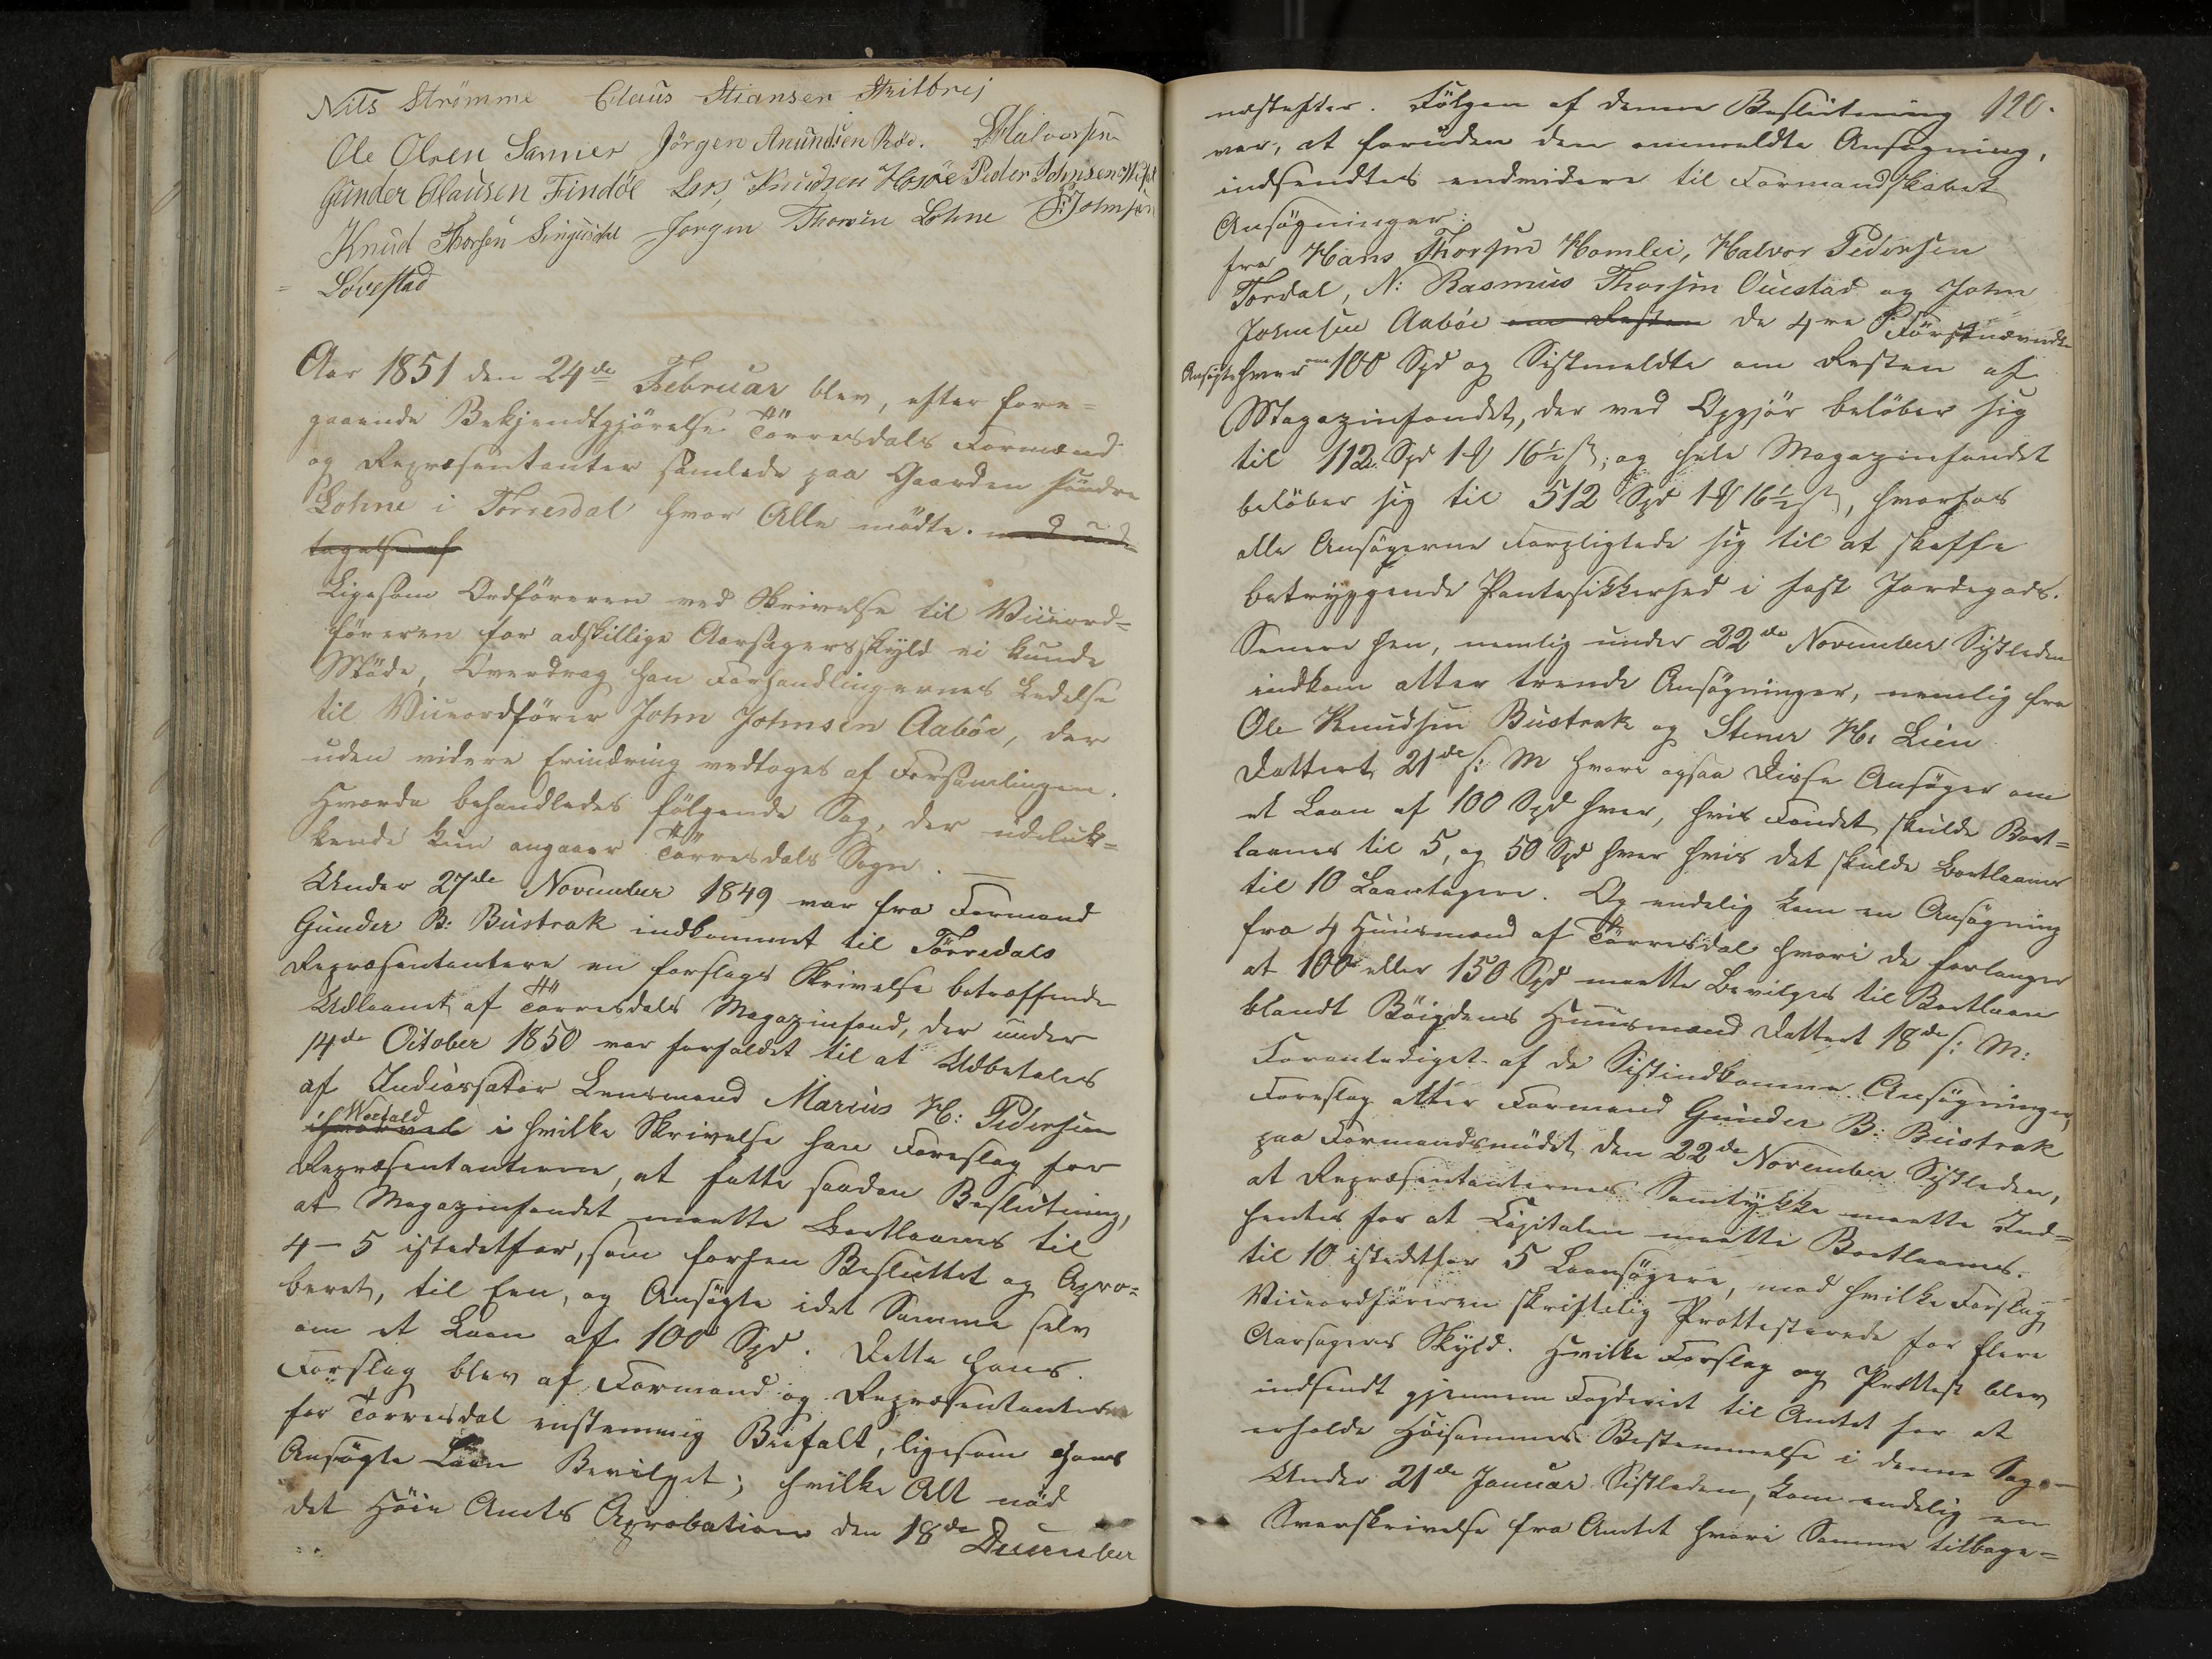 Nils Strømme Claus Stiansen
Ole Olsen Sanner Jörgen Anundsen Röe. Halvorsen
Gunder Olausen Findöe Lars Knudsen Hosöe Peder Johnsen
Knud Thorsen Jörgen Thorsen Lohne Johnsen
Lövestad
Aar 1851 den 24de Februar blev, efter fore=
gaaende Bekjendtgjörelse Törresdals Formænd
og Repræsentanter samlede paa Gaarden söndre
Lohne i Törresdal hvor Alle mödte. med und=
tagelse af
Ligesom Ordföreren ved Skrivelse til Viceord=
föreren for adskillige Aarsagers skyld ei kunde
Möde, Overdrog han Forhandlingernes Ledelse
til Viceordförer John Johnsen Aaböe, der
uden videre Erindring vedtoges af Forsamlingen.
Hvorda behandledes fölgende Sag, der udeluk=
kende kun angaaer Törresdals Sogn. —
Under 27de November 1849 var fra Formand
Gunder B: Bustrak indkommet til Törredals
Repræsentantere en forslags Skrivelse betræffende
Udlaanet af Törresdals Magazinfond, der under
14de October 1850 var forfaldet til at Udbetales
af Lensmand Marius H: Pedersen
Woxsald i hvilke Skrivelse han Foreslog for
Repræsentanterne, at fatte saadan Beslutning,
at Magazinfondet maatte Bortlaanes til
4–5 istedetfor, som forhen Besluttet og Apro=
beret, til Een, og Ansögte idet Samme selv
om et Laan af 100 Spd. Dette hans
Forslag blev af Formænd og Repræsentantere
for Törresdal enstemmig Biefalt, ligesom hans
Ansögte Laan Bevilget; hvilke Alt nöd
det Höie Amts Aprobation den 18de December
næstefter. Fölgen af denne Beslutning 120.
var, at foruden den anmeldte Ansögning,
indsendtes endvidere til Formandskabet
Ansögninger:
fra Hans Thorsen Homlei, Halvor Pedersen
Tordal, N: Rasmus Thorsen Ouestad og John
Johnsen Aaböe om Resten de 4re Förstnævndte
Ansögte hver om 100 Spd og Sistmeldte om Resten af
Magazinfondet, der ved Opgjör belöber sig
til 112 Spd 1 16½ ß; og hele Magazinfondet
belöber sig til 512 Spd 1 16½ ß, hvorhos
alle Ansögerne Forpligtede sig til at skaffe
betryggende Pantesikkerhed i fast Jordegods.
Senere hen, nemlig under 22de November Sistleden
indkom atter trende Ansögninger, nemlig fra
Ole Knudsen Bustrak og Stener H: Lien
Dattert 21de s: M hvori ogsaa Disse Ansöger om
et Laan af 100 Spd hver, hvis Fondet skulde Bort=
laanes til 5, og 50 Spd hver hvis det skulde bortlaanes
til 10 Laantagere. Og endelig kom en Ansögning
fra 4 Huusmænd af Törresdal hvori de forlanger
at 100 eller 150 Spd maatte Bevilges til Bortlaan
blandt Böigdens Huusmænd Dattert 18de s: M:
Foranlediget af de Sistindkomne Ansögninger,
Foreslog atter Formand Gunder B: Bustrak
paa Formandsmödet den 22de November Sistleden,
at Repræsentanternes Samtykke maatte Ind=
hentes for at Capitalen maatte Bortlaanes.
til 10 istedetfor 5 Laansögere, mod hvilke Forslag
Viceordföreren skriftelig Prottesterede for flere
Aarsagers Skyld. Hvilke Forslag og Prottest blev
indsendt gjennem Fogderiet til Amtet for at
erholde Höisammes Bestemmelse i denne Sag. —
Under 21de Januar Sistleden, kom endelig en
Svarskrivelse fra Amtet hvori Samme tilbage=